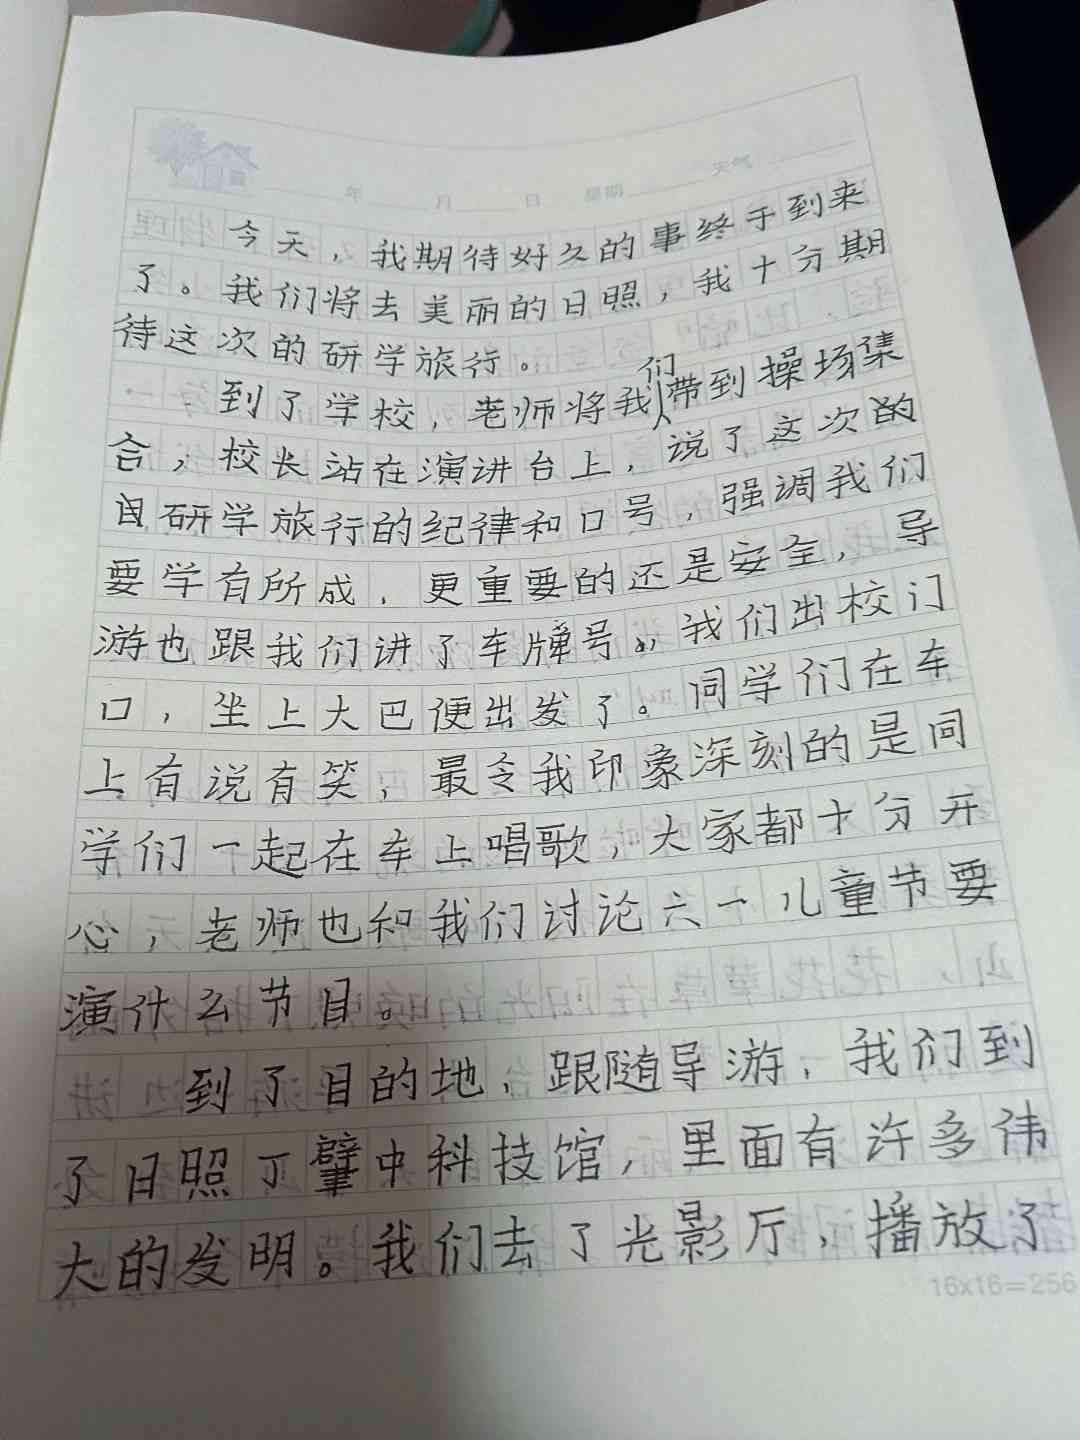 年 月 日 星期 天气
今天，我期待好久的事终于到来
了。我们将去美丽的日照，我十分期
待这次的研学旅行。
到了学校，老师将我们带到操场集
合，校长站在演讲台上，说了这次的
研学旅行的纪律和口号，强调我们
要学有所成，更重要的还是安全，导
游也跟我们讲了车牌号。我们出校门
口，坐上大巴便出发了。同学们在车
上有说有笑，最令我印象深刻的是同
学们一起在车上唱歌，大家都十分开
心，老师也和我们讨论六一儿童节要
演什么节目。
到了目的地，跟随导游，我们到
了日照丁肇中科技馆，里面有许多伟
大的发明。我们去了光影厅，播放了
16x16=256